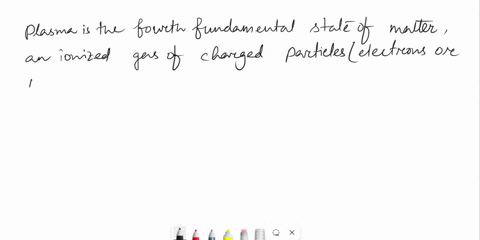 Plasma is the fourth fundamental state of matter,
an ionized gas of charged particles (electrons are